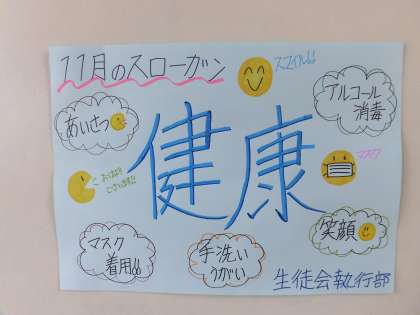 11月のスローガン
スマイル!!
あいさつ
アルコール
消毒
健康
おはよう
ございます!!
マスク
マスク
着用!!
手洗い
うがい
笑顔
生徒会執行部